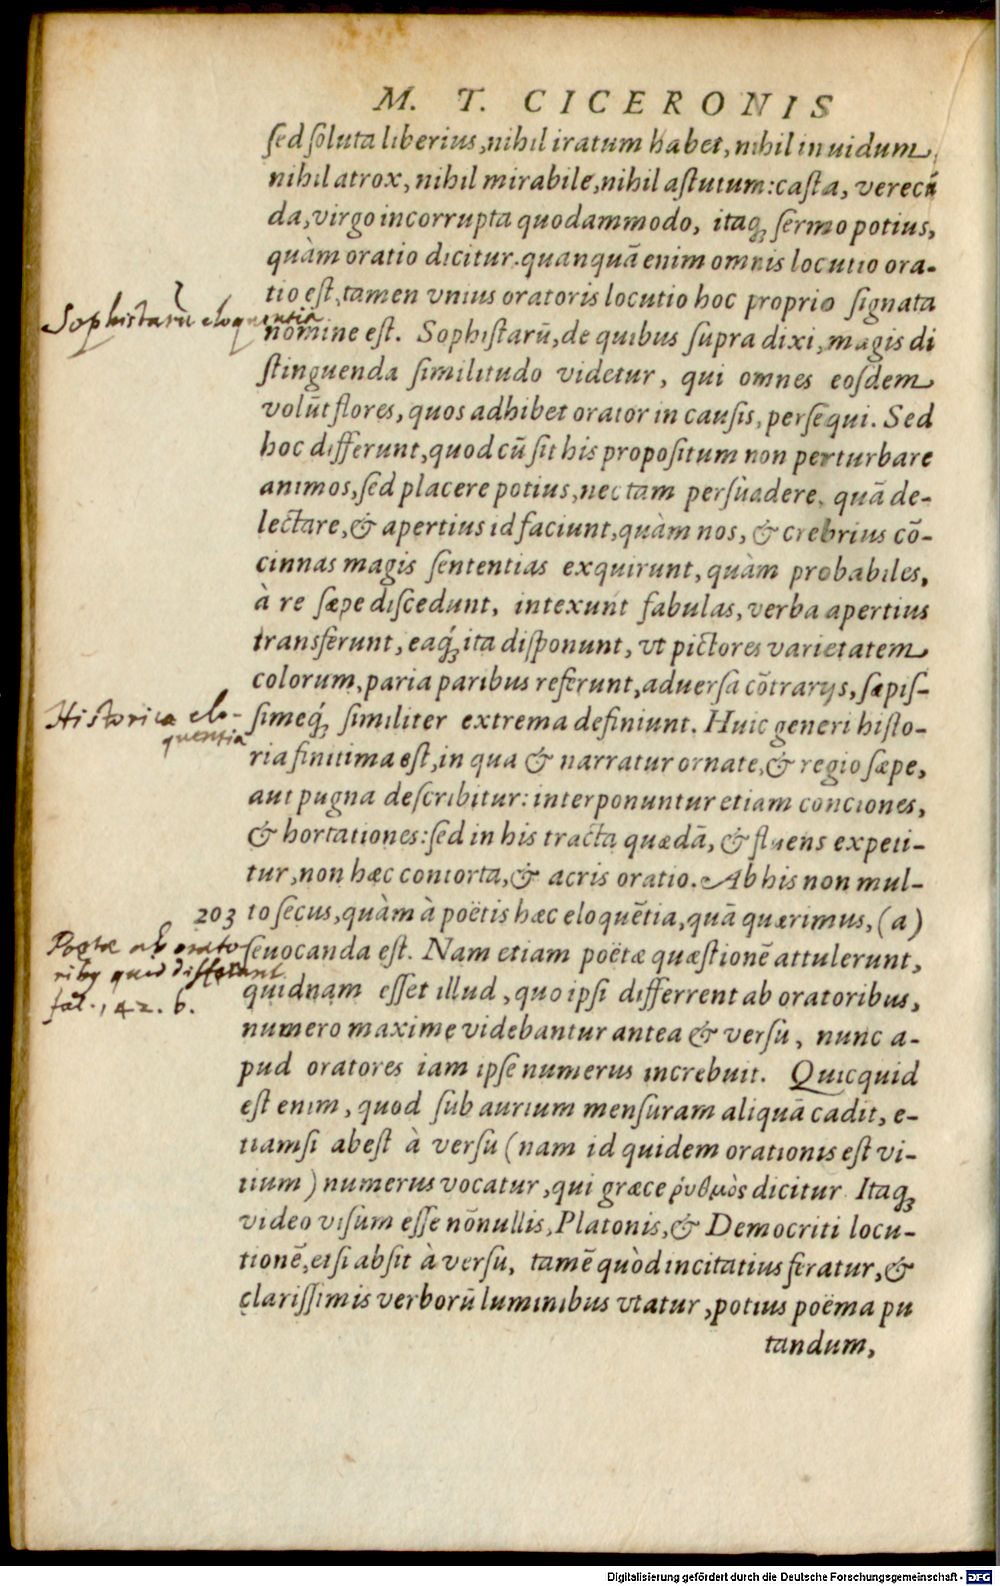 M. T. CICERONIS
sed soluta liberius, nihil iratum habet, nihil inuidum,
nihil atrox, nihil mirabile, nihil astutum: casta, verecū
da, virgo incorrupta quodammodo, itaq; sermo potius,
quàm oratio dicitur. quanquā enim omnis locutio ora-
tio est, tamen vnius oratoris locutio hoc proprio signata
Sophistarū eloquentia
nomine est. Sophistarū, de quibus supra dixi, magis di
stinguenda similitudo videtur, qui omnes eosdem
volūt flores, quos adhibet orator in causis, persequi. Sed
hoc differunt, quod cū sit his propositum non perturbare
animos, sed placere potius, nec tam persuadere, quā de-
lectare, & apertius id faciunt, quàm nos, & crebrius cō-
cinnas magis sententias exquirunt, quàm probabiles,
à re sæpe discedunt, intexunt fabulas, verba apertius
transferunt, eaq́; ita disponunt, vt pictores varietatem
colorum, paria paribus referunt, aduersa cōtrarijs, sæpis-
Historica elo-
quentia
simeq́; similiter extrema definiunt. Huic generi histo-
ria finitima est, in qua & narratur ornate, & regio sæpe,
aut pugna describitur: interponuntur etiam conciones,
& hortationes: sed in his tracta quædā, & fluens expeti-
tur, non hæc contorta, & acris oratio. Ab his non mul-
203 to secus, quàm à poëtis hæc eloquētia, quā quærimus, (a)
Poetæ ab orato
ribꝰ quid differant
fāl. 142. 6.
seuocanda est. Nam etiam poëtæ quæstionē attulerunt,
quidnam esset illud, quo ipsi differrent ab oratoribus,
numero maxime videbantur antea & versu, nunc a-
pud oratores iam ipse numerus increbuit. Quicquid
est enim, quod sub aurium mensuram aliquā cadit, e-
tiamsi abest à versu (nam id quidem orationis est vi-
tium) numerus vocatur, qui græce ῥυθμὸς dicitur Itaq;
video visum esse nōnullis, Platonis, & Democriti locu-
tionē, etsi absit à versu, tamē quòd incitatius feratur, &
clarissimis verborū luminibus vtatur, potius poëma pu
tandum,
Digitalisierung gefördert durch die Deutsche Forschungsgemeinschaft - DFG